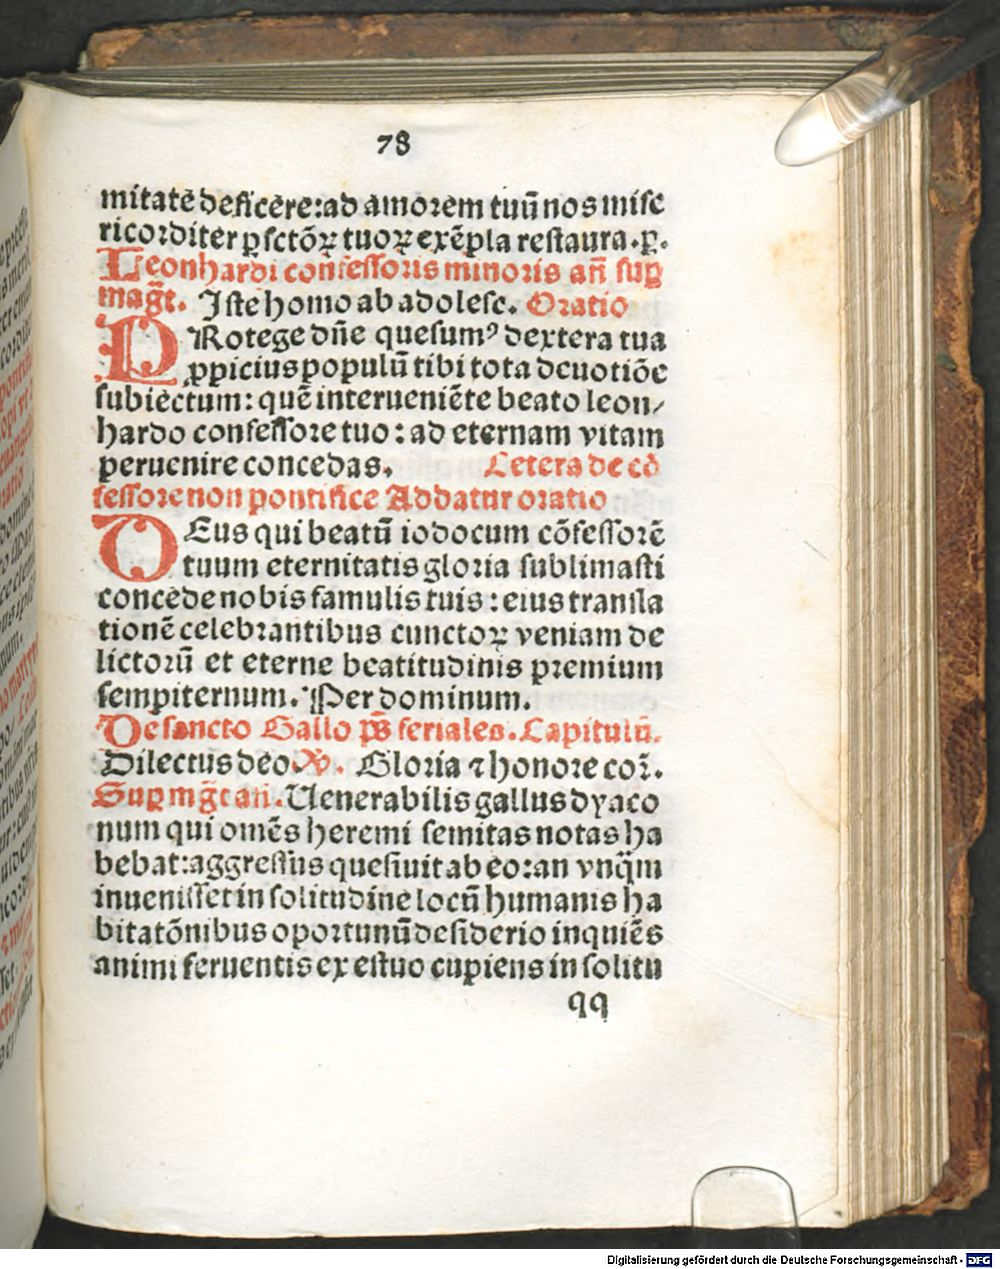 78
mitatē deficere: ad amorem tuū nos mise
ricorditer ꝑ sctōꝝ tuoꝝ exēpla restaura. ꝑ.
Leonhardi confessoris minoris an̄ suꝑ
maḡt. Iste homo ab adolesc. Oratio
PRotege dn̄e quesumꝰ dextera tua
ꝓpicius populū tibi tota deuotiōe
subiectum: quē interueniēte beato leon⸗
hardo confessore tuo: ad eternam vitam
peruenire concedas. Cetera de cō
fessore non pontifice Addatur oratio
DEus qui beatū iodocum cōfessorē
tuum eternitatis gloria sublimasti
concede nobis famulis tuis: eius transla
tionē celebrantibus cunctoꝝ veniam de
lictorū et eterne beatitudinis premium
sempiternum. Per dominum.
De sancto Gallo ps̄ feriales. Capitulū.
Dilectus deo. ℟. Gloria ⁊ honore cor̄.
Suꝑ mḡt an̄. Uenerabilis gallus dyaco
num qui omēs heremi semitas notas ha
bebat: aggressus quesiuit ab eo: an vnq̄m
inuenisset in solitudine locū humanis ha
bitatōnibus oportunū desiderio inquiēs
animi feruentis ex estuo cupiens in solitu
qq
Digitalisierung gefördert durch die Deutsche Forschungsgemeinschaft - DFG